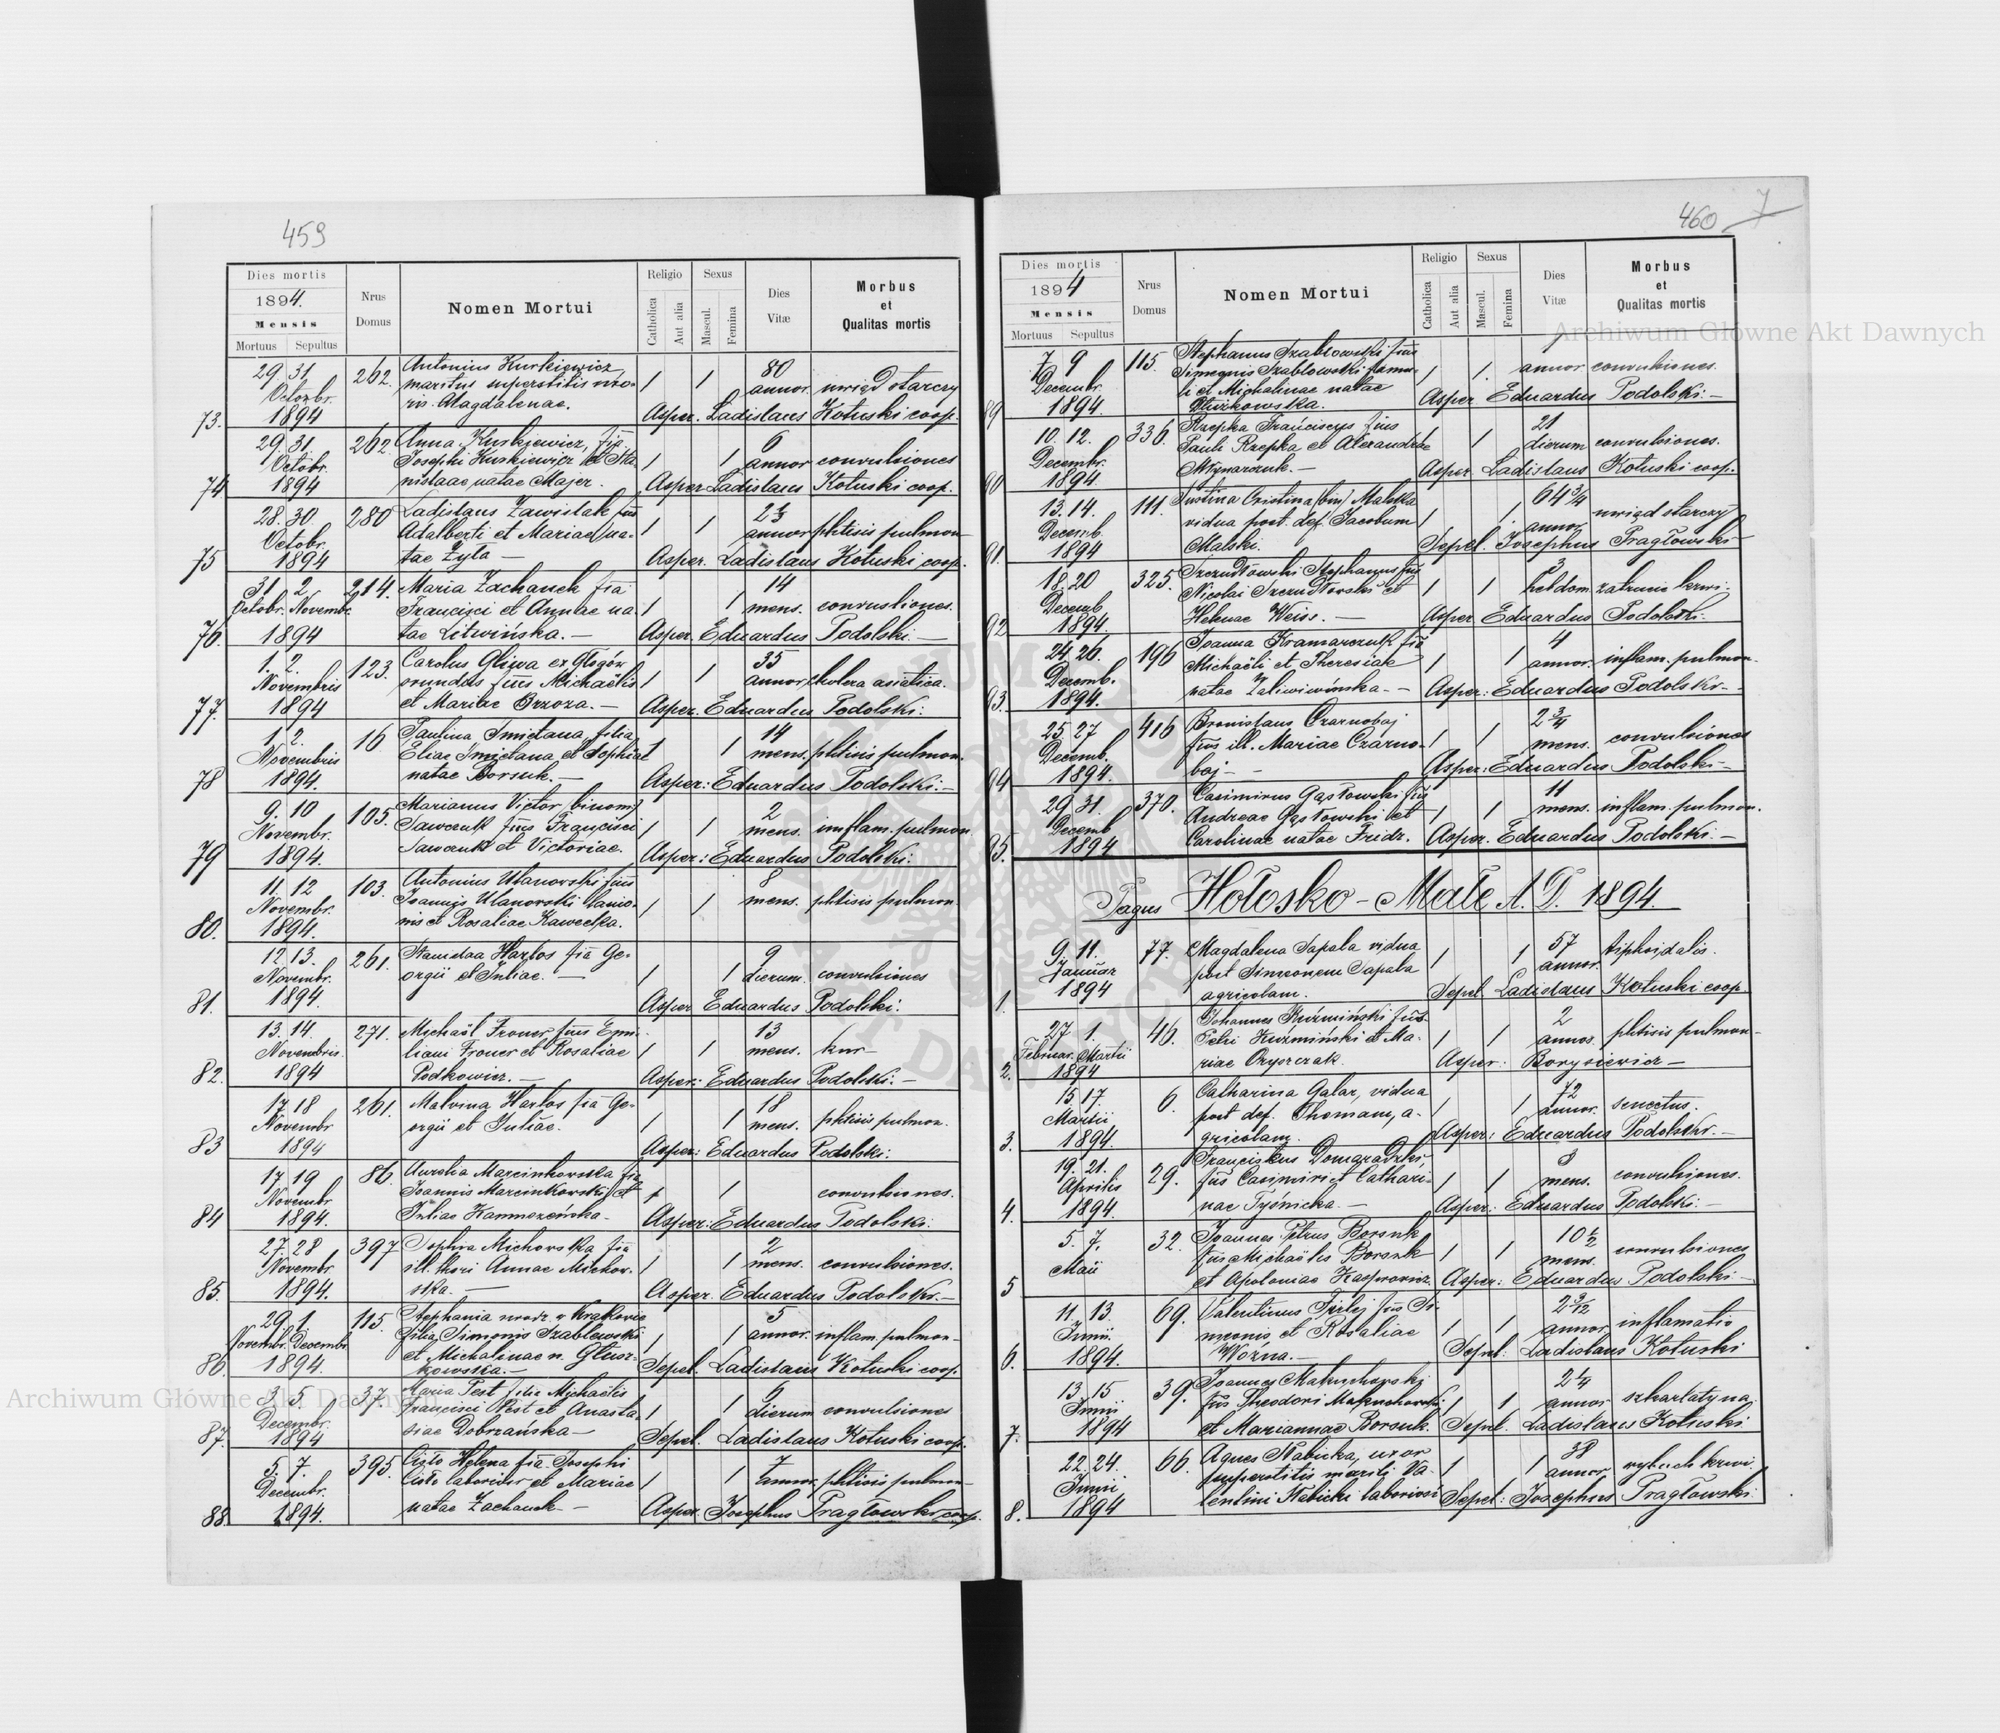 459
Dies mortis
1894.
Mensis
Mortuus Sepultus
Nrus
Domus
Nomen Mortui
Religio
Catholica
Aut alia
Sexus
Mascul.
Femina
Dies
Vitæ
Morbus
et
Qualitas mortis
73.
29. 31.
Octobr.
1894
262.
Antonius Kurkiewicz
maritus superstitis uxo-
ris Magdalenae.
1 1
80
annor. uwiąd starczy
Asper. Ladislaus Kotuski coop.
74
29. 31.
Octobr.
1894
262.
Anna Kurkiewicz, fia
Josephi Kurkiewicz et Sta-
nislaae natae Majer.
1 1
6
annor convulsiones
Asper Ladislaus Kotuski coop.
75
28. 30.
Octobr.
1894
280
Ladislaus Zawislak fius
Adalberti et Mariae na-
tae Zyla —
1 1
annor phtisis pulmon
Asper. Ladislaus Kotuski coop.
76.
31 2
Octobr. Novembr.
1894
214.
Maria Zachauck fia
Francisci et Annae na-
tae Litwińska. —
1 1
14
mens. convulsiones.
Asper. Eduardus Podolski —
77.
1. 2.
Novembris
1894
123.
Carolus Gliwa ex Głogów
orundus fius Michaëlis
et Mariae Brzoza. —
1 1
35
annor, cholera asiatica.
Asper. Eduardus Podolski.
78
1. 2.
Novembris
1894.
16.
Paulina Smietana filia
Eliae Smietana et Sophiae
natae Borsuk. —
1 1
14
mens. phtisis pulmon.
Asper: Eduardus Podolski. —
79
9. 10
Novembr.
1894.
105.
Marianus Victor (binom)
Sawczuk fius Francisci
Sawczuk et Victoriae.
1 1
2
mens. imflam. pulmon
Asper.: Eduardus Podolski.
80.
11. 12
Novembr.
1894.
103.
Antonius Ulanovski fius
Joannis Ulanovski lanio-
nis et Rosaliae Kawecka.
1 1
8
mens. phtisis pulmon
81.
12. 13.
Novembr.
1894.
261.
Stanislaa Harłos fia Ge-
orgii et Juliae. —
1 1
9
dierum. convulsiones
Asper Eduardus Podolski:
82.
13. 14.
Novembris.
1894
271.
Michaël Froner fius Emi-
liani Froner et Rosaliae
Podkowicz. —
1 1
13
mens. kur—
Asper: Eduardus Podolski. —
83
17 18
Novembr
1894
261.
Malvina Harłos fia Ge-
orgii et Juliae.
1 1
18
mens. phtisis pulmon.
Asper: Eduardus Podolski:
84
17 19
Novembr
1894.
86.
Aurelia Marcinkovska fia
Joannis Marcinkowski et
Juliae
1 1
convulsiones.
Asper: Eduardus Podolski:
85.
27. 28
Novembr.
1894.
397
Sophia Michovska fia
ill. thori Annae Michov-
ska. —
1 1
2
mens. convulsiones.
Asper. Eduardus Podolski. —
86.
29. 1.
Novembr. Decembr.
1894.
115.
Stephania urodz. w Krakowie
filia Simonis Szablowski
et Michalinae n. Głusz-
kowska.—
1 1
5
annor. inflam. pulmon—
Sepel. Ladislaus Kotuski coop.
87.
3. 5.
Decembr.
1894
37.
Maria Pest filia Michaëlis
Francisci Pest et Anasta-
siae Dobrzańska—
1 1
dierum convulsiones
Sepel. Ladislaus Kotuski coop.
88.
5. 7.
Decembr.
1894.
395.
Cisło Helena fia Josephi
Cisło laborior et Mariae
natae Zachauck —
1 1
7 annor. phtisis pulmon—
Asper. Josephus Pragłowski coop.
460
7
Dies mortis
1894
Mensis
Mortuus Sepultus
Nrus
Domus
Nomen Mortui
Religio
Catholica
Aut alia
Sexus
Mascul.
Femina
Dies
Vitæ
Morbus
et
Qualitas mortis
89
7 9
Decembr.
1894.
115.
Stephanus Szablowski fius
Simeonis Szablowski famu-
li et Michalinae natae
Głuszkowska.
1 1.
annor convulsiones.
Asper Eduardus Podolski: —
90
10. 12.
Decembr.
1894.
336.
Rzepka Franciscus fius
Pauli Rzepka et Alexandrae
Młynarczuk. —
1 1
21
dierum convulsiones.
Asper. Ladislaus Kotuski coop.
91.
13. 14.
Decemb.
1894
111.
Justina Cristina (bin) Malska
vidua post. def. Jacobum
Malski.
1 1
64 3/4
annor. uwiąd starczy
Sepel. Josephus Pragłowski—
92
18. 20
Decemb.
1894.
325.
Szczudłowski Stephanus fius
Nicolai Szczudłowski et
Helenae Weiss. —
1 1
3
hebdom. zatrucie krwi.
Asper Eduardus Podolski.
93.
24 26.
Decemb.
1894.
196
Joanna Kramarczuk fia
Michaëli et Theresiae
natae
1 1
4
annor. inflam. pulmon.
Asper: Eduardus Podolski. —
94
25 27
Decemb.
1894.
416
Bronislaus Czarnobaj
fius ill. Mariae Czarno-
baj —
1 1
2 3/4
mens. convulsiones
Asper: Eduardus Podolski—
95.
29. 31.
Decemb
1894
370.
Casimirus Gąsłowski fius
Andreae Gąsłowski et
Carolinae natae Fridz.
1 1
11
mens. inflam. pulmon.
Asper. Eduardus Podolski. —
Pagus Hołosko - Małe A. D. 1894.
1.
9. 11.
Januar
1894
77.
Magdalena Sapala vidua
post Simeonem Sapala
agricolam.
1 1
57
annor. tiphoidalis.
Sepel. Ladislaus Kotuski coop.
2.
27 1.
Februar. Martii
1894
46.
Johannes Kuźmiński fius
Petri Kuźmiński et Ma-
riae Onyszczak.
1 1
2
annor. phtisis pulmon—
Asper: Borysiewicz —
3.
15. 17.
Martii
1894.
6.
Catharina Galar, vidua
post def. Thomam, a-
gricolam.
1 1
72
annor. senectus.
Asper: Eduardus Podolski. —
4.
19. 21.
Aprilis
1894.
29.
Franciscus Domaradzki
fius Casimiri et Cathari-
nae Tyśnicka. —
1 1
3
mens. convulsiones.
Asper: Eduardus Podolski: —
5
5. 7.
Maii
32.
Joannes Petrus Borsuk
fius Michaëlis Borsuk
et Apoloniae Kasprowicz.
1 1
10 1/2
mens. convulsiones
Asper: Eduardus Podolski —
6.
11. 13.
Junii.
1894.
69.
Valentinus fius Si-
meonis et Rosaliae
Woźna. —
1 1
2 3/12
annor. inflamatio
Sepel: Ladislaus Kotuski
7.
13. 15
Junii
1894
39.
Joannes Makuchovski
fius Theodori Makuchovski
et Mariannae Borsuk.
1 1
2 1/4
annor szkarlatyna
Sepel. Ladislaus Kotuski
8.
22. 24.
Junii
1894
66.
Agnes Nabicka, uxor
superstitis mariti Va-
lentini Nabicki laboriosi
1 1
38
annor wybuch krwi.
Sepel: Josephus Pragłowski.
Archiwum Główne Akt Dawnych
Archiwum Główne Akt Dawnych